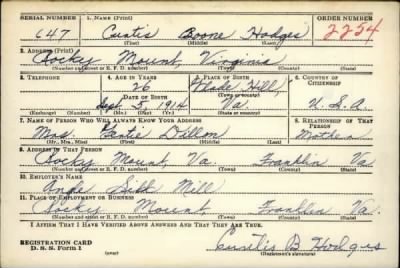 SERIAL NUMBER 1. NAME (Print) ORDER NUMBER
647 Curtis Boone Hodges 2254
(First) (Middle) (Last)
2. ADDRESS (Print)
Rocky Mount, Virginia
(Number and street or R. F. D. number) (Town) (County) (State)
3. TELEPHONE 4. AGE IN YEARS 5. PLACE OF BIRTH 6. COUNTRY OF CITIZENSHIP
26 Glade Hill,
DATE OF BIRTH (Town or county)
Sept 5, 1914 Va. U. S. A.
(Exchange) (Number) (Mo.) (Day) (Yr.) (State or country)
7. NAME OF PERSON WHO WILL ALWAYS KNOW YOUR ADDRESS 8. RELATIONSHIP OF THAT PERSON
Mrs. Dillon Mother
(Mr., Mrs., Miss) (First) (Middle) (Last)
9. ADDRESS OF THAT PERSON
Rocky Mount, Va. Franklin Va
(Number and street or R. F. D. number) (Town) (County) (State)
10. EMPLOYER'S NAME
Angle Silk Mill
11. PLACE OF EMPLOYMENT OR BUSINESS
Rocky Mount, Franklin Va.
(Number and street or R. F. D. number) (Town) (County) (State)
I AFFIRM THAT I HAVE VERIFIED ABOVE ANSWERS AND THAT THEY ARE TRUE.
REGISTRATION CARD
D. S. S. Form 1
Curtis B Hodges
(over) (Registrant's signature)